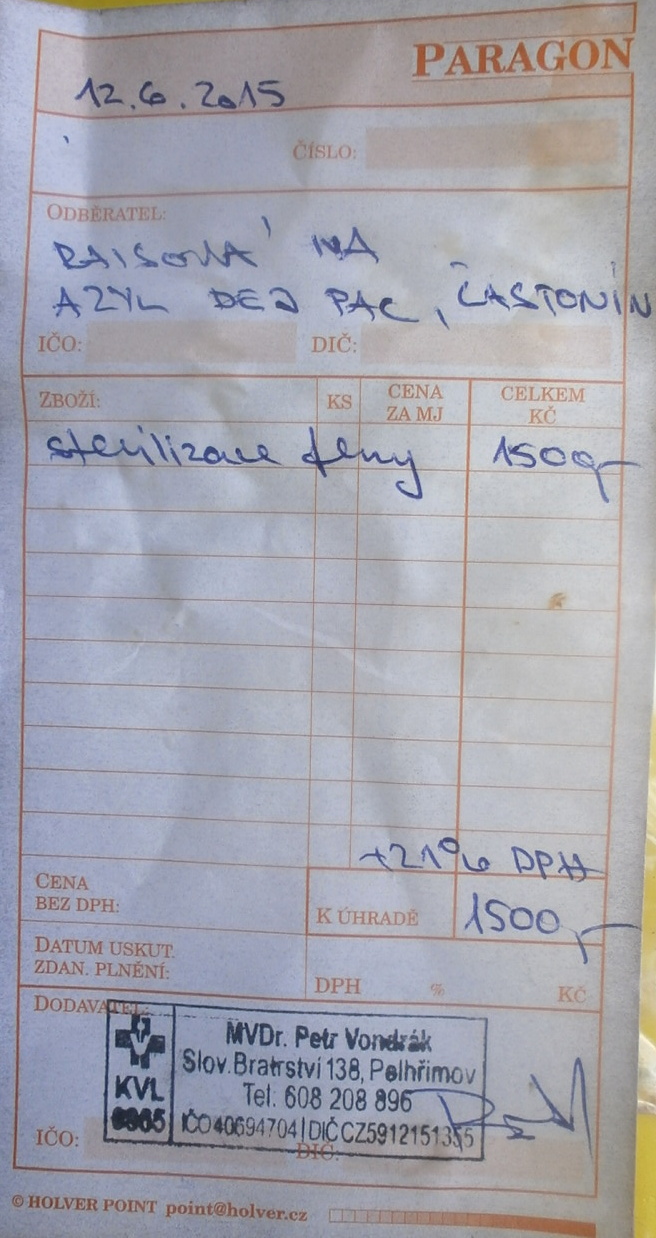 PARAGON
12.6.2015
ČÍSLO:
ODBĚRATEL:
RAISOVÁ
AZYL DEJ PAC, ČASTONÍN
IČO: DIČ:
ZBOŽÍ: KS CENA ZA MJ CELKEM KČ
sterilizace feny 1500,-
+21% DPH
CENA BEZ DPH:
K ÚHRADĚ 1500,-
DATUM USKUT. ZDAN. PLNĚNÍ:
DPH % KČ
DODAVATEL:
MVDr. Petr Vondrák
Slov.Bratrství 138, Pelhřimov
Tel: 608 208 896
KVL
IČO40694704|DIČCZ5912151355
IČO: DIČ:
© HOLVER POINT point@holver.cz